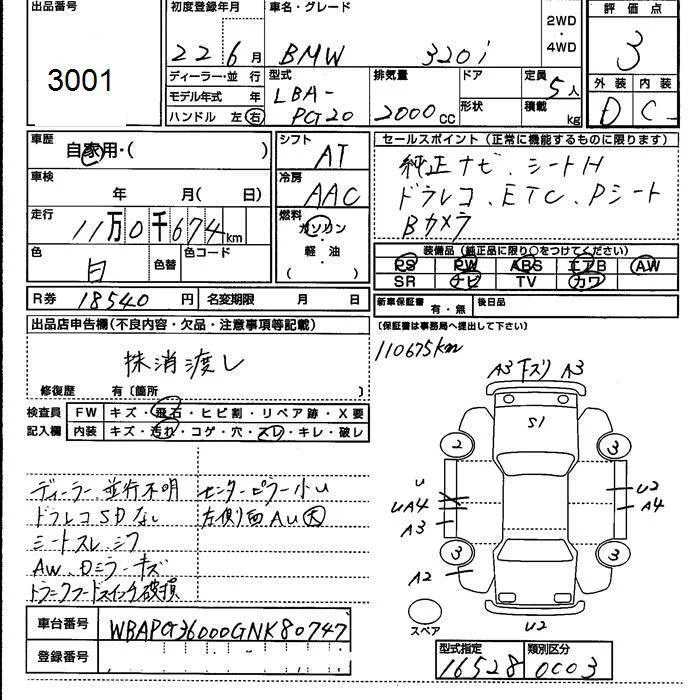 出品番号
3001
初度登録年月
22 6月
車名・グレード
BMW 320i
2WD・4WD
評価点
3
外装 内装
D C
ディーラー・並行
モデル年式 年
ハンドル 左 右
型式
LBA-PG20
排気量
2000cc
ドア
形状
定員
5人
積載
kg
車歴
自家用・( )
車検
年 月( 日)
走行
11万0千674km
色
白
色替
色コード
シフト
AT
冷房
AAC
燃料
ガソリン・軽油
( )
セールスポイント(正常に機能するものに限ります)
純正ナビ、シートH
ドラレコ、ETC、Pシート
Bカメラ
装備品(純正品に限り○をつけてください)
PS PW ABS エアB AW
SR ナビ TV カワ
R券 18540円
名変期限 月 日
新車保証書 有・無
後日品
(保証書は事務局へ提出して下さい)
出品店申告欄(不良内容・欠品・注意事項等記載)
抹消渡し
修復歴 有〔箇所 〕
110675km
検査員記入欄
FW キズ・飛石・ヒビ割・リペア跡・X要
内装 キズ・汚れ・コゲ・穴・スレ・キレ・破レ
ディーラー、並行不明
ドラレコSDなし
シートスレ、シワ
AW、Dミラーキズ
トランクフードスイッチ破損
センターピラー小U
左側面AU大
A3 下スリ A3
S1
2
3
U
UA4
A3
U2
A4
3
3
A2
スペア
U2
車台番号
WBAPG36000GNK80747
登録番号
型式指定
16528
類別区分
0003